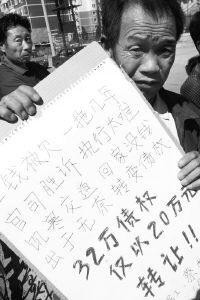 钱被欠 一拖几年
官司胜诉 执行太难
饥寒交迫 回家没钱
出于无奈 转卖债
32万债权
仅以20万元
转让!!